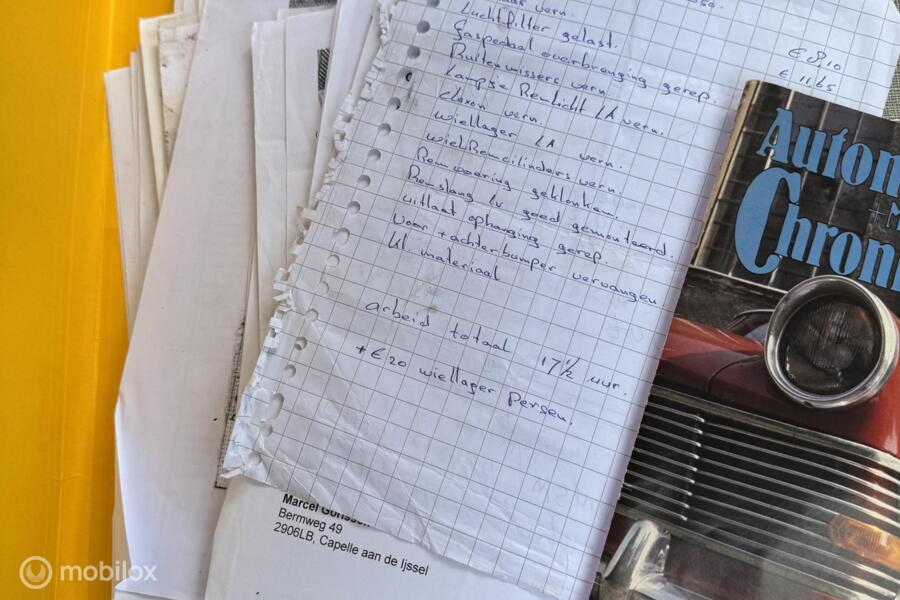 vern.
Luchtfilter gelast.
Gaspedaal overbrenging gerep.
€ 8,10
Ruitenwissers vern
€ 11,65
Lampje Remlicht LA vern.
claxon vern.
wiellager LA vern.
wielRemcilinders vern.
Remvoering geklonken.
Remslang LV goed gemonteerd.
uitlaat ophanging gerep.
voor + achterbumper vervangen
kl materiaal
arbeid totaal 17 1/2 uur.
+ € 20 wiellager Persen.
Marcel
Bermweg 49
2906LB, Capelle aan de Ijssel
Autom
+M
Chron
mobilox